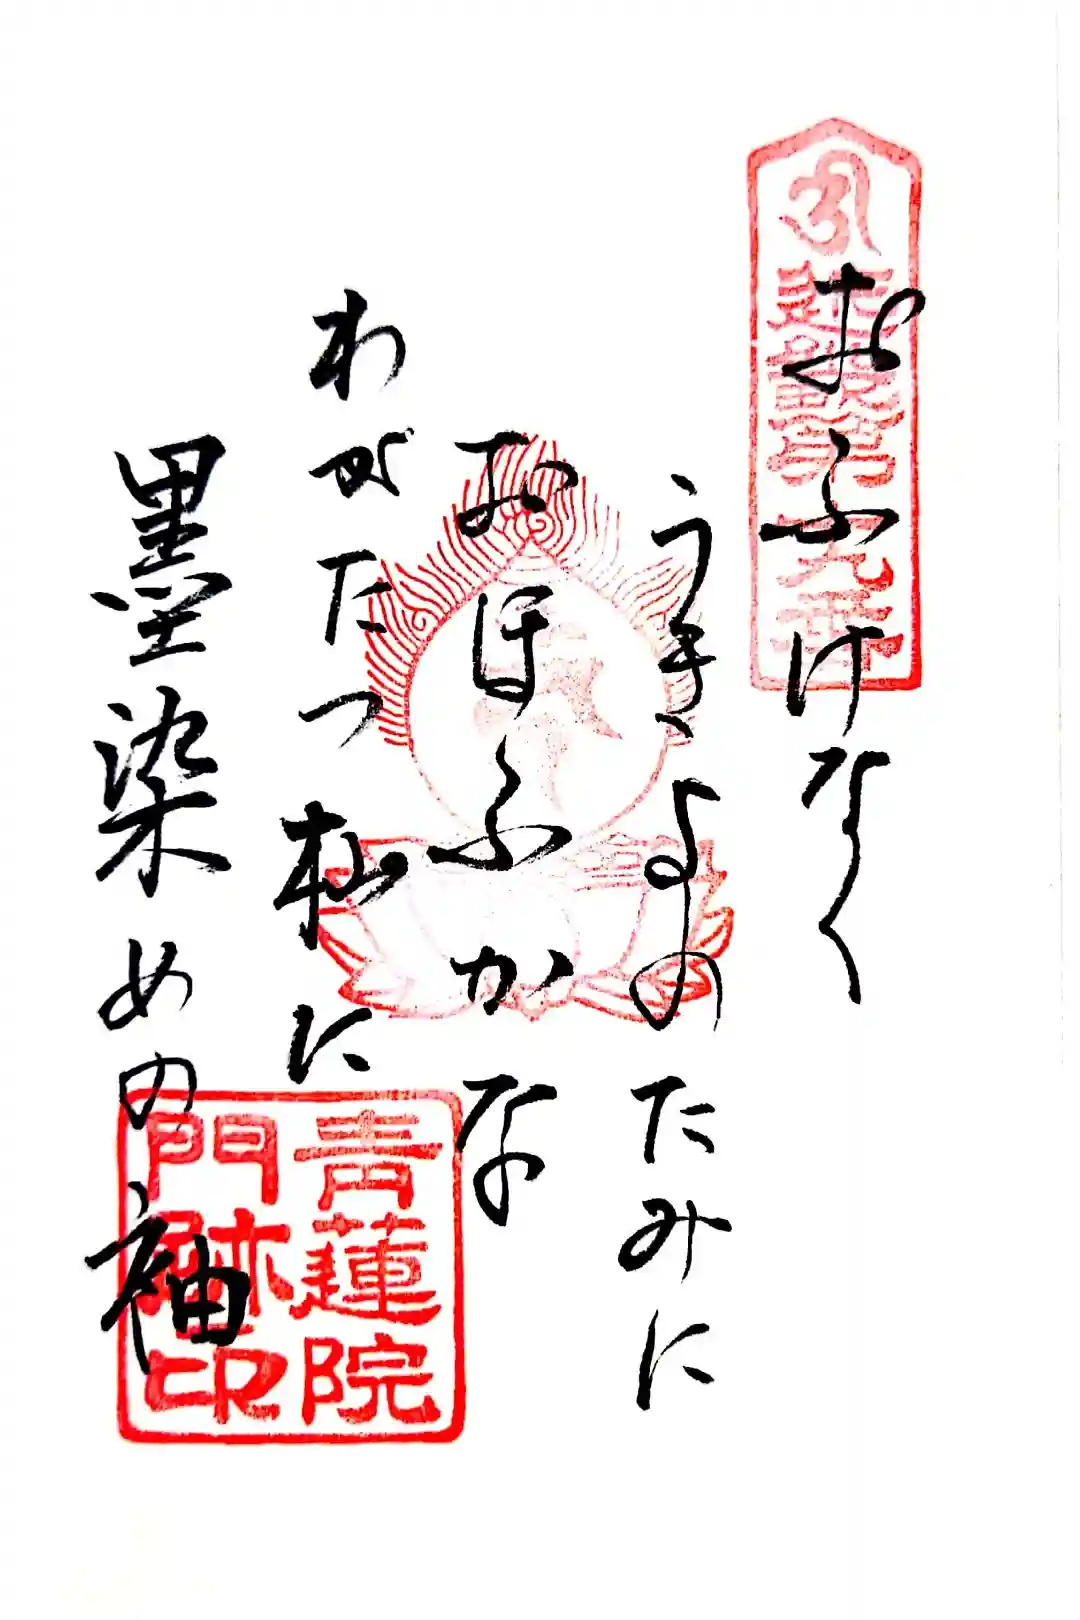 おふけなく
うきよのたみに
おほふかな
わがたつ杣に
墨染めの袖
近畿第九番
青蓮院
門跡印